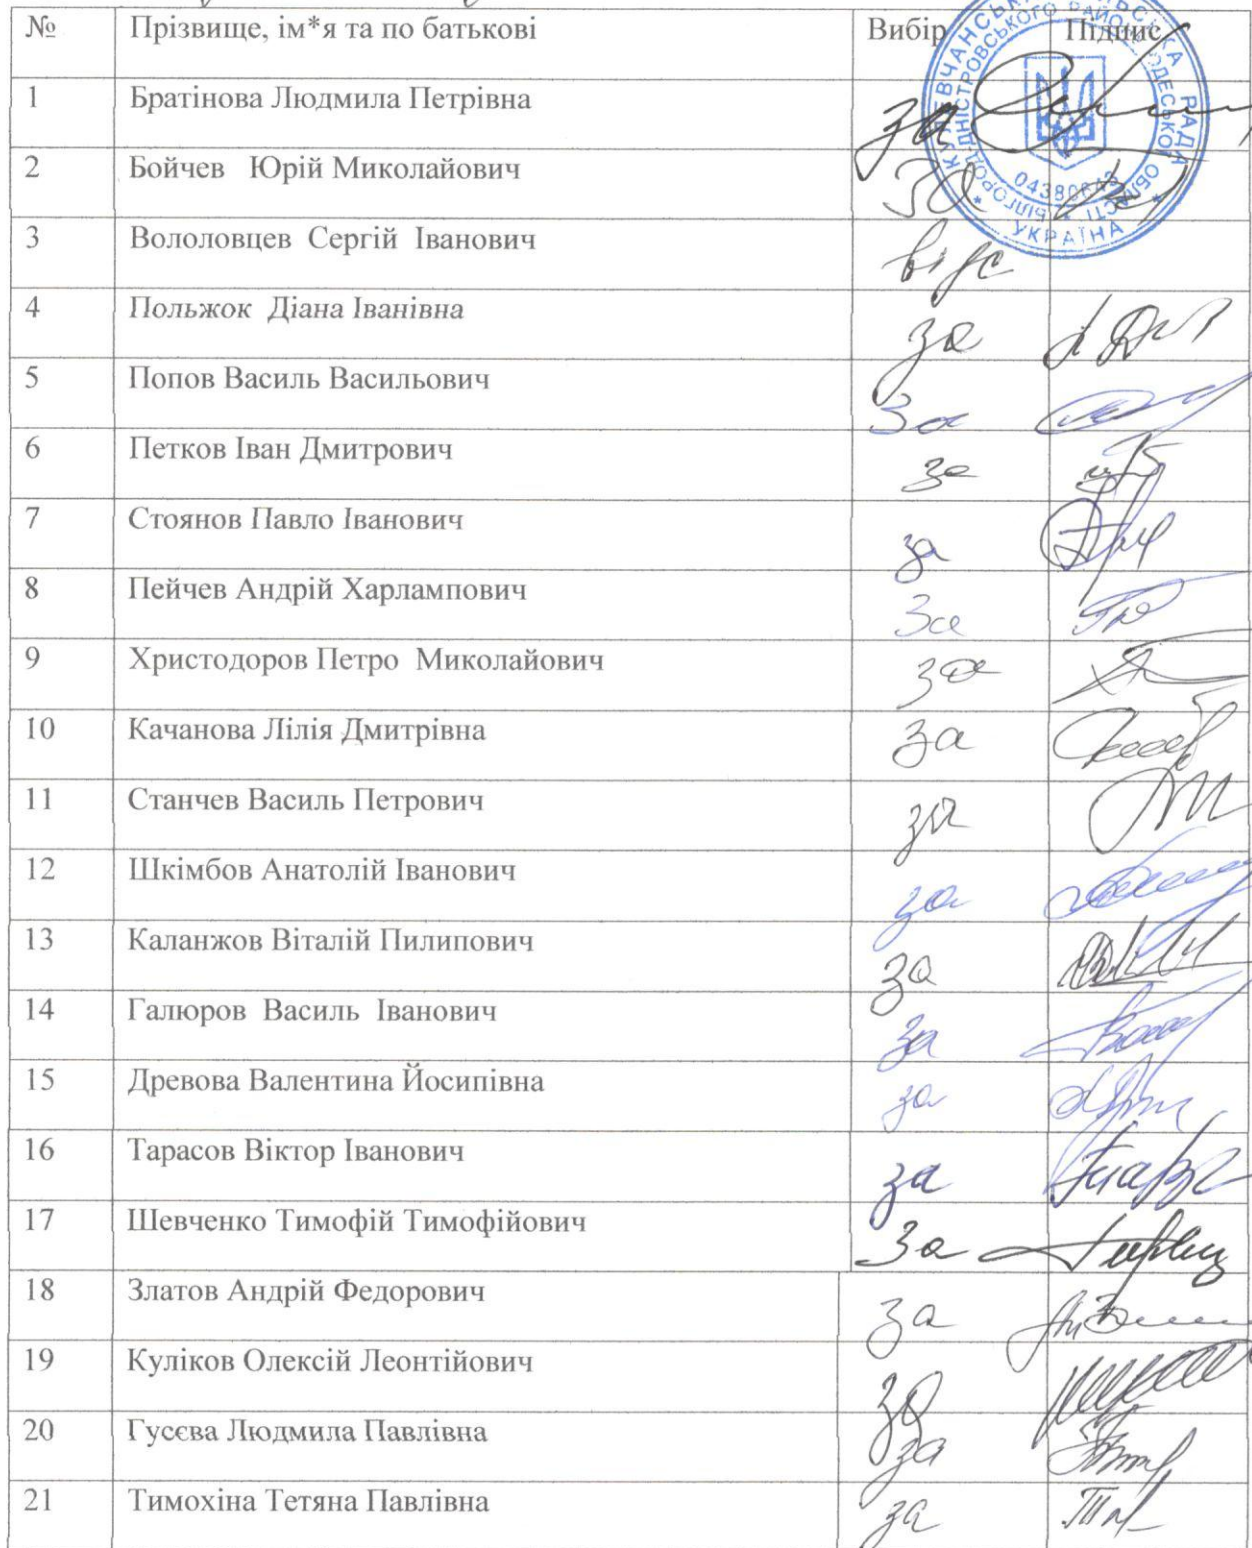 № Прізвище, ім*я та по батькові Вибір Підпис
1 Братінова Людмила Петрівна за
2 Бойчев Юрій Миколайович за
3 Вололовцев Сергій Іванович відс
4 Польжок Діана Іванівна за
5 Попов Василь Васильович За
6 Петков Іван Дмитрович за
7 Стоянов Павло Іванович за
8 Пейчев Андрій Харлампович За
9 Христодоров Петро Миколайович за
10 Качанова Лілія Дмитрівна за
11 Станчев Василь Петрович за
12 Шкімбов Анатолій Іванович за
13 Каланжов Віталій Пилипович за
14 Галюров Василь Іванович за
15 Древова Валентина Йосипівна за
16 Тарасов Віктор Іванович за
17 Шевченко Тимофій Тимофійович За
18 Златов Андрій Федорович за
19 Куліков Олексій Леонтійович за
20 Гусєва Людмила Павлівна за
21 Тимохіна Тетяна Павлівна за
РАДА
УКРАЇНА